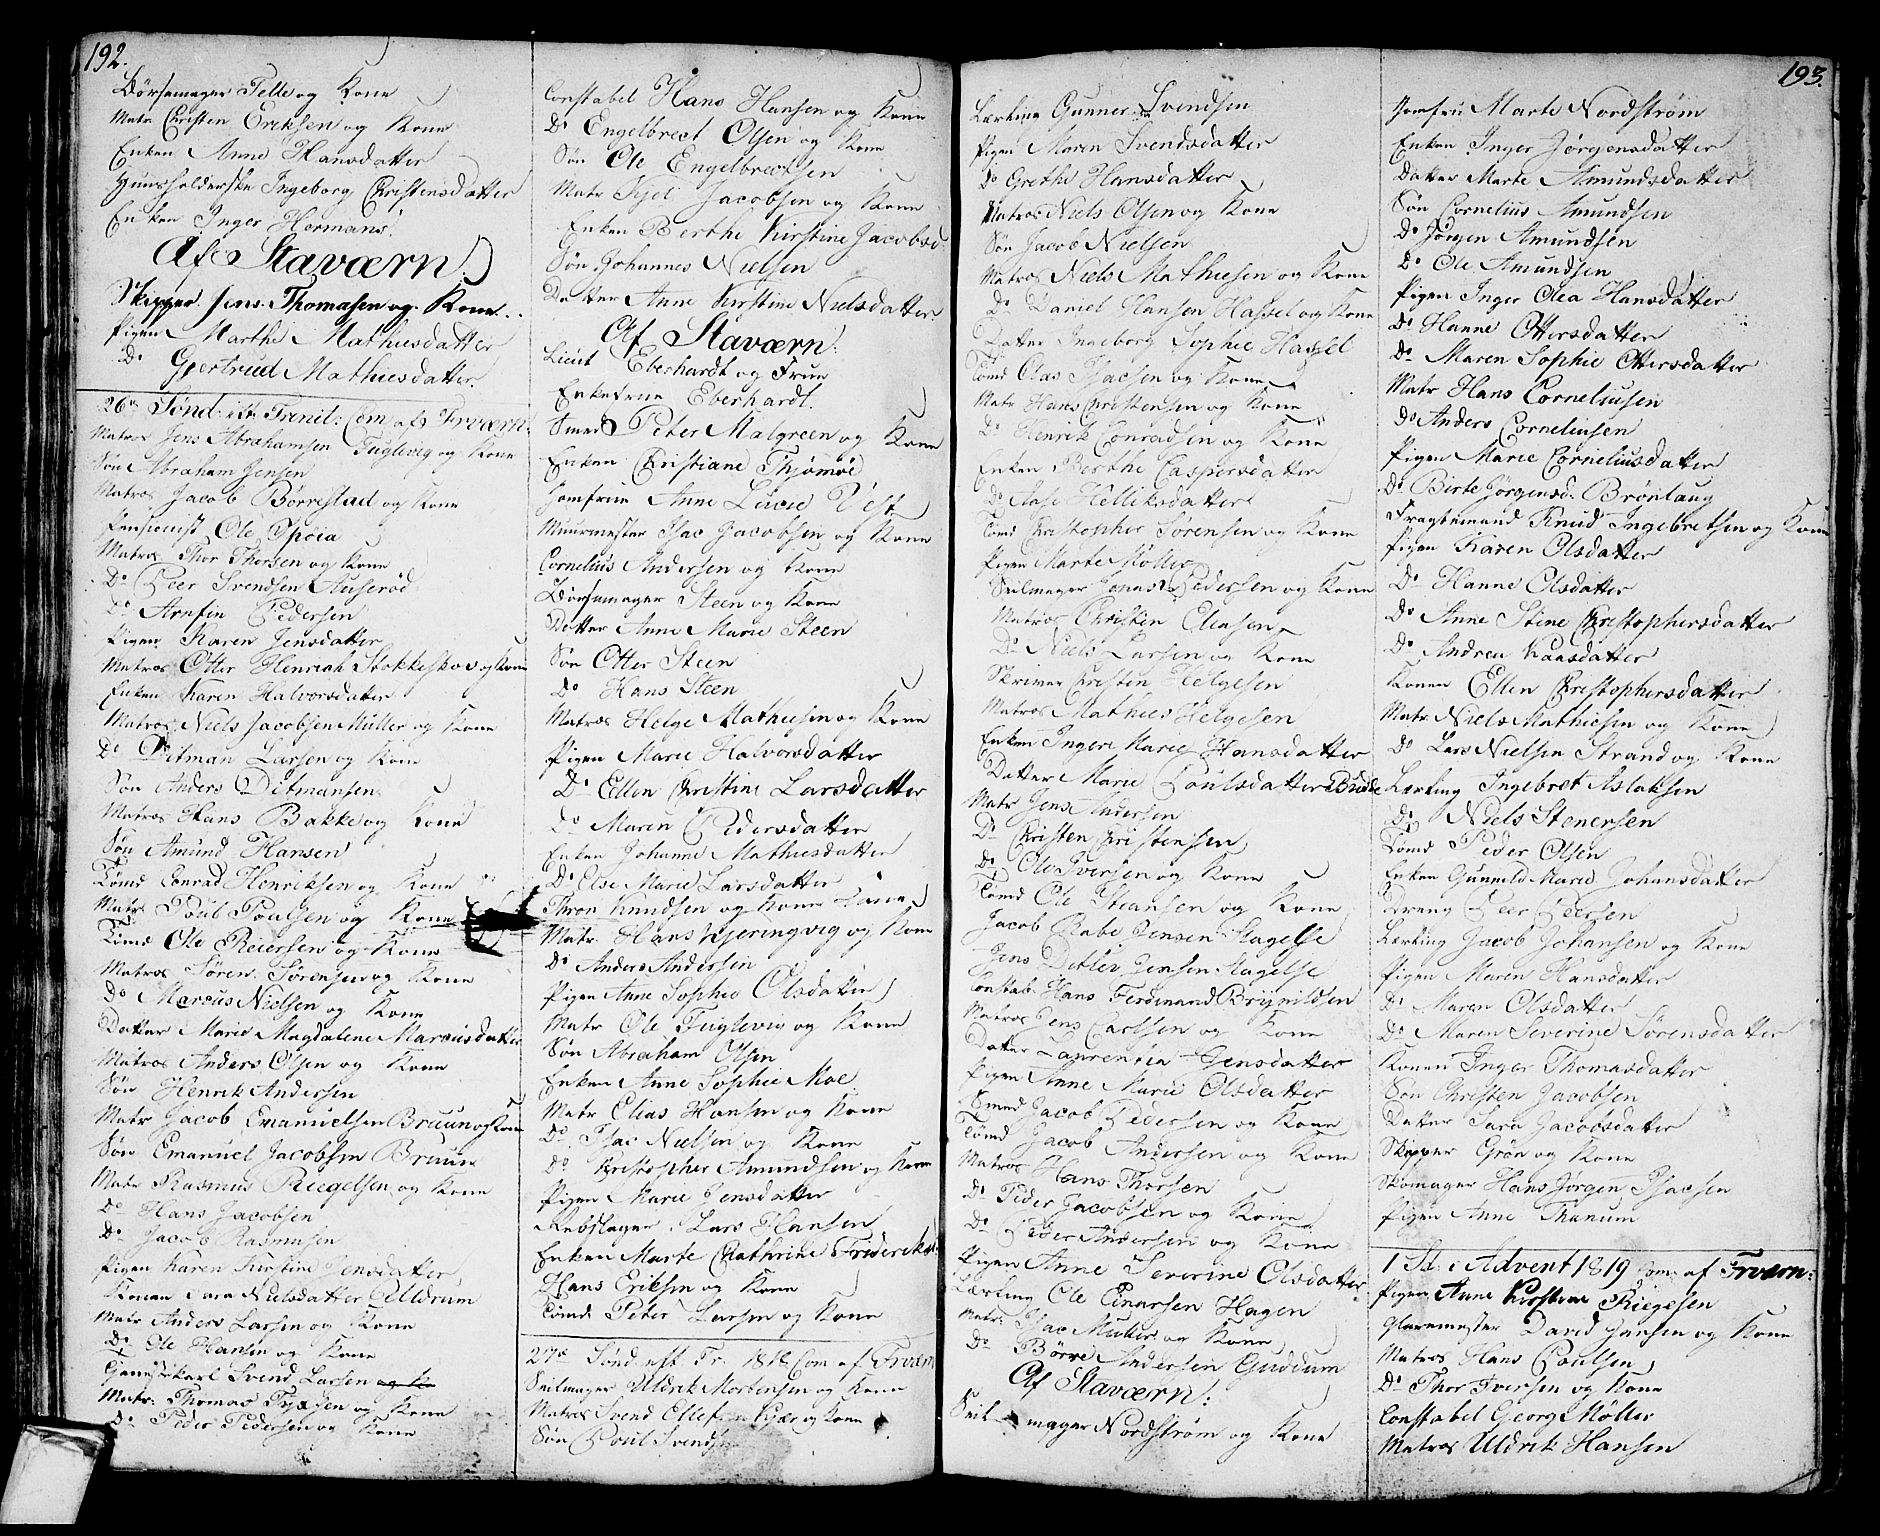 192.
Børsemager Telle og Kone
Matr Christen Eriksen og Kone
Enken Anne Hansdatter
Huusholderske Ingeborg Christensdatter
Enken Inger Hermans
Af Staværn
Skipper Jens Thomasen og Kone
Pigen Marthe Mathiesdatter
Do Gjertrud Mathiesdatter
26de Sønd: eft: Trenit: Com af Frværn:
Matros Jens Abrahamsen Fuglevig og Kone
Søn Abraham Jensen
Matros Jacob Børrestad og Kone
Pensionist Ole
Matros Thor Thorsen og Kone
Do Peer Svendsen Auserød
Do Arnfin Pedersen
Pigen Karen Jensdatter
Matros Otter Henrich Stokkeskov og Kone
Enken Karen Halvorsdatter
Matros Niels Jacobsen Müller og Kone
Do Ditman Larsen og Kone
Søn Anders Ditmansen
Matros Hans Bakke og Kone
Søn Amund Hansen
Tømd Conrad Henriksen og Kone
Matr Poul Poulsen og Kone
Tømd Ole Reiersen og Kone
Matros Søren Sørensen og Kone
Do Marcus Nielsen og Kone
Datter Marie Magdalene Marcusdatter
Matros Anders Olsen og Kone
Søn Henrik Andersen
Matr Jacob Emanuelsen Bruun og Kone
Søn Emanuel Jacobsen Bruun
Matr Rasmus Riegelsen og Kone
Do Hans Jacobsen
Do Jacob Rasmusen
Pigen Karen Kirstine Jensdatter
Konen Sara Nielsdatter Eldrum
Matr Anders Larsen og Kone
Do Ole Hansen og Kone
Svend Larsen
Matr: Thomas og Kone
Do Peder Pedersen og Kone
Constabel Hans Hansen og Kone
Do Engelbrect Olsen og Kone
Søn Ole Engelbrectsen
Matr Kjel Jacobsen og Kone
Enken Berthe Kirstine Jacobsd
Søn Johannes Nielsen
Datter Anne Kirstine Nielsdatter
Af Staværn:
Lieut Eberhardt og Frue
Enkefrue Eberhardt.
Smed Peter Malgreen og Kone
Enken Christiane Thømøe
Jomfrue Anne Lucie Vest
Muurmester Isac Jacobsen og Kone
Cornelius Andersen og Kone
Børsemager Steen og Kone
Datter Anne Marie Steen
Søn Otter Steen
Do Hans Steen
Matros Helge Mathiesen og Kone
Pigen Marie Halvorsdatter
Do Ellen Christine Larsdatter
Do Maren Pedersdatter
Enken Johanne Mathiesdatter
Do Else Marie Larsdatter
Thron Knudsen og Kone
Matr. Hans Kjeringvig og Kone
Do Anders Andersen
Pigen Anne Sophie Olsdatter
Matr Ole Fuglevig og Kone
Søn Abraham Olsen
Enken Anne Sophie Moe
Matr Elias Hansen og Kone
Do Isac Nielsen og Kone
Do Kristopher Amundsen og Kone
Pigen Marie Jensdatter
Rebslager Lars Hansen
Enken Marte Cathrine Friderichs
Hans Eriksen og Kone
Tømd Peter Larsen og Kone
27de Sønd eft Tr. 1818 Com af Frværn
Seilmager Uldrik Mortensen og Kone
Matros Svend Ellefsen Kjær og Kone
Søn Poul Svendsen
193.
Lærling Gunner Svendsen
Pigen Maren Svendsdatter
Do Grethe Hansdatter
Matros Niels Olsen og Kone
Søn Jacob Nielsen
Matros Niels Mathiesen og Kone
Do Daniel Hansen Hassel og Kone
Datter Ingeborg Sophie Hassel
Tømd Clas Isacsen og Kone
Matr Hans Christensen og Kone
Do Henrik Conradsen og Kone
Enken Berthe Caspersdatter
Do Aase Helliksdatter
Tømd Christopher Sørensen og Kone
Pigen Marte Møller
Seilmager Jonas Pedersen og Kone
Matros Christen Eliasen
Do Niels Larsen og Kone
Skriver Christen Helgesen
Matros Mathies Helgesen
Enken Inger Marie Hansdatter
Datter Marie Poulsdatter Budde
Matr Jens Andersen
Do Christen Christensen
Do Ole Iversen og Kone
Tømd Ole Stiansen og Kone
Jacob Rabe Jensen Slagelse
Jens Ditlev Jensen Slagelse
Constab Hans Ferdinand Brynildsen
Matros Jens Carlsen og Kone
Datter Laurentia Jensdatter
Pigen Anne Marie Olsdatter
Smed Jacob Pedersen og Kone
Tømd Jacob Andersen og Kone
Matros Hans Thorsen
Do Peder Jacobsen og Kone
Do Peder Andersen og Kone
Pigen Anne Severine Olsdatter
Lærling Ole Einarsen Hagen
Matr. Isac og Kone
Do Børre Andersen Guddum
Af Staværn:
Seilmager Nordstrøm og Kone
Jomfru Marte Nordstrøm
Enken Inger Jørgensdatter
Datter Marte Amundsdatter
Søn Cornelius Amundsen
Do Jørgen Amundsen
Do Ole Amundsen
Pigen Inger Olea Hansdatter
Do Hanne Ottersdatter
Do Maren Sophie Ottersdatter
Matr Hans Corneliusen
Do Anders Corneliusen
Pigen Marie Corneliusdatter
Do Birte Jørgensd. Brønlaug
Fragtemand Knud Ingebretsen og Kone
Pigen Karen Olsdatter
Do Hanne Olsdatter
Do Anne Stine Christophersdatter
Do Andrea Hansdatter
Konen Ellen Christophersdatter
Matr Niels Mathiesen og Kone
Do Lars Nielsen Strand og Kone
Lærling Ingebret Aslaksen
Do Niels Stenersen
Tømd Peder Olsen
Enken Gunnild Marie Johansdatter
Dreng Peer Peersen
Lærling Jacob Johansen og Kone
Pigen Maren Hansdatter
Do Maren Olsdatter
Do Maren Severine Sørensdatter
Konen Inger Thomasdatter
Søn Christen Jacobsen
Datter Sara Jacobsdatter
Skipper Grøn og Kone
Skomager Hans Jørgen Isacsen
Pigen Anne Thanum
1 Sd: i Advent 1819 Com: af Frværn:
Pigen Anne Kirstine Riegelsen
Glarmester David Jansen og Kone
Matros Hans Poulsen
Do Thor Iversen og Kone
Constabel Georg Møller
Matros Uldrik Hansen